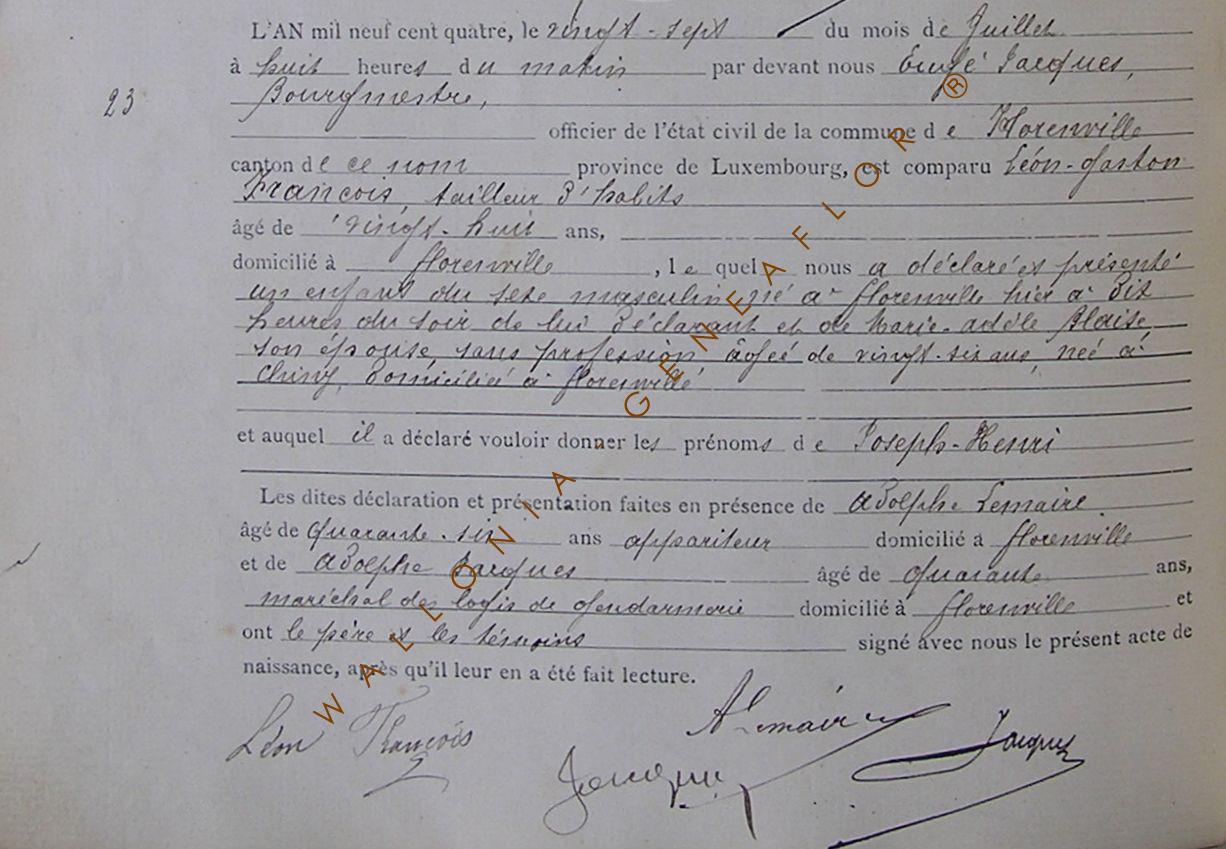 L'AN mil neuf cent quatre, le vingt-sept du mois de Juillet
à huit heures du matin par devant nous Jacques,
23
Bourgmestre,
officier de l'état civil de la commune de Florenville
canton de ce nom province de Luxembourg, est comparu Léon-Gaston
François, tailleur d'habits
âgé de vingt-huit ans,
domicilié à Florenville, lequel nous a déclaré et présenté
un enfant du sexe masculin né à Florenville hier à dix
heures du soir de lui déclarant et de Marie-Adèle Blaise,
son épouse, sans profession âgée de vingt-six ans, née à
Chiny, domiciliée à Florenville
et auquel il a déclaré vouloir donner les prénoms de Joseph-Henri
Les dites déclaration et présentation faites en présence de Adolphe Lemaire
âgé de quarante-six ans appariteur domicilié à Florenville
et de Adolphe Jacques âgé de quarante ans,
maréchal des logis de gendarmerie domicilié à Florenville et
ont le père et les témoins signé avec nous le présent acte de
naissance, après qu'il leur en a été fait lecture.
Léon François
A Lemaire
Jacques
Jacques
WALLONIA GENEAFLOR ®